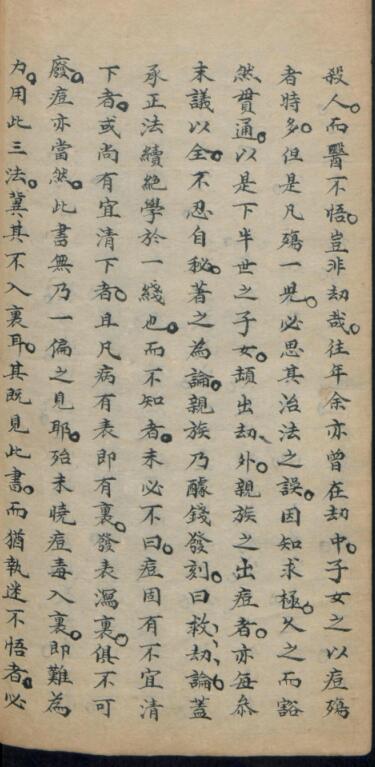 殺人。而醫不悟。豈非劫哉。往年余亦曾在劫中。子女之以痘殤
者時多。但是凡殤一兒。必思其治法之誤。因知求極。久之而豁
然貫通。以是下半世之子女。頡出劫外。親族之出痘者。亦每叅
末議以全。不忍自秘。著之為論。親族乃醵錢發刻。曰救劫論。蓋
承正法續絕學於一綫也。而不知者。未必不曰。痘固有不宜清
下者。或尚有宜清下者。且凡病有表即有裏。發表瀉裏。俱不可
廢。痘亦當然。此書無乃一偏之見耶。殆未曉痘毒入裏。即難為
力。用此三法。冀其不入裏耳。其既見此書。而猶執迷不悟者。必